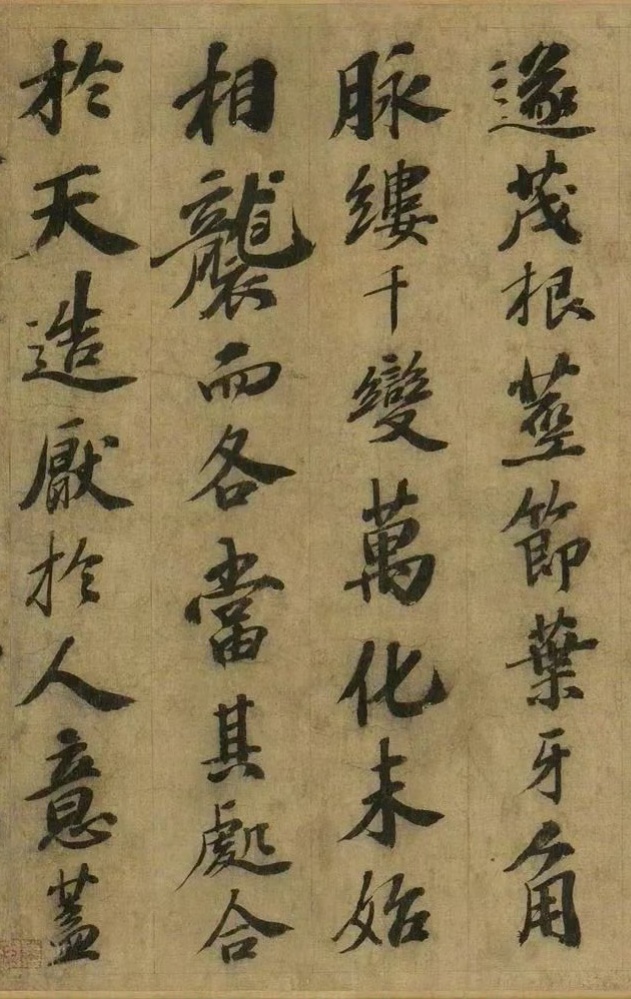 遂茂根莖節葉牙角
脉縷千變萬化未始
相襲而各當其處合
於天造厭於人意蓋